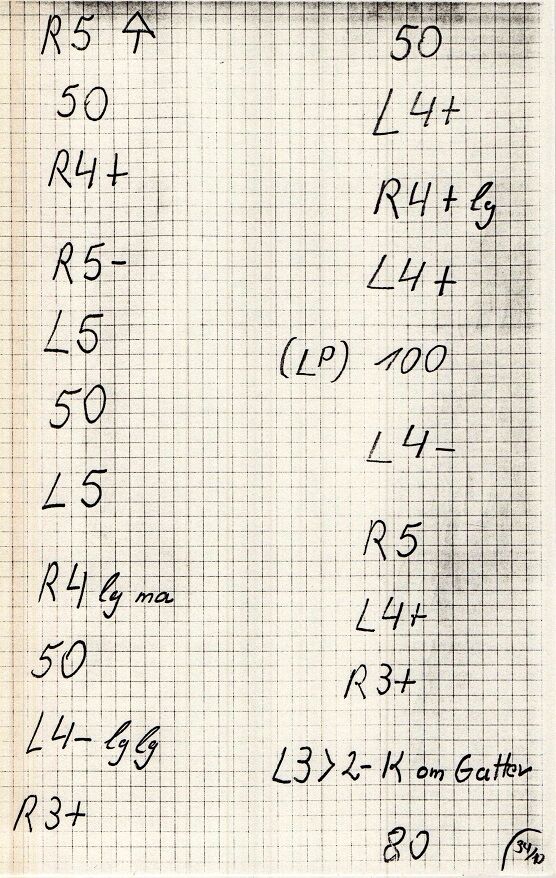 R5 ↑
50
R4+
R5-
L5
50
L5
R4 lg ma
50
L4- lglg
R3+
50
L4+
R4+ lg
L4+
(LP) 100
L4-
R5
L4+
R3+
L3>2- K om Gatter
80
34/10